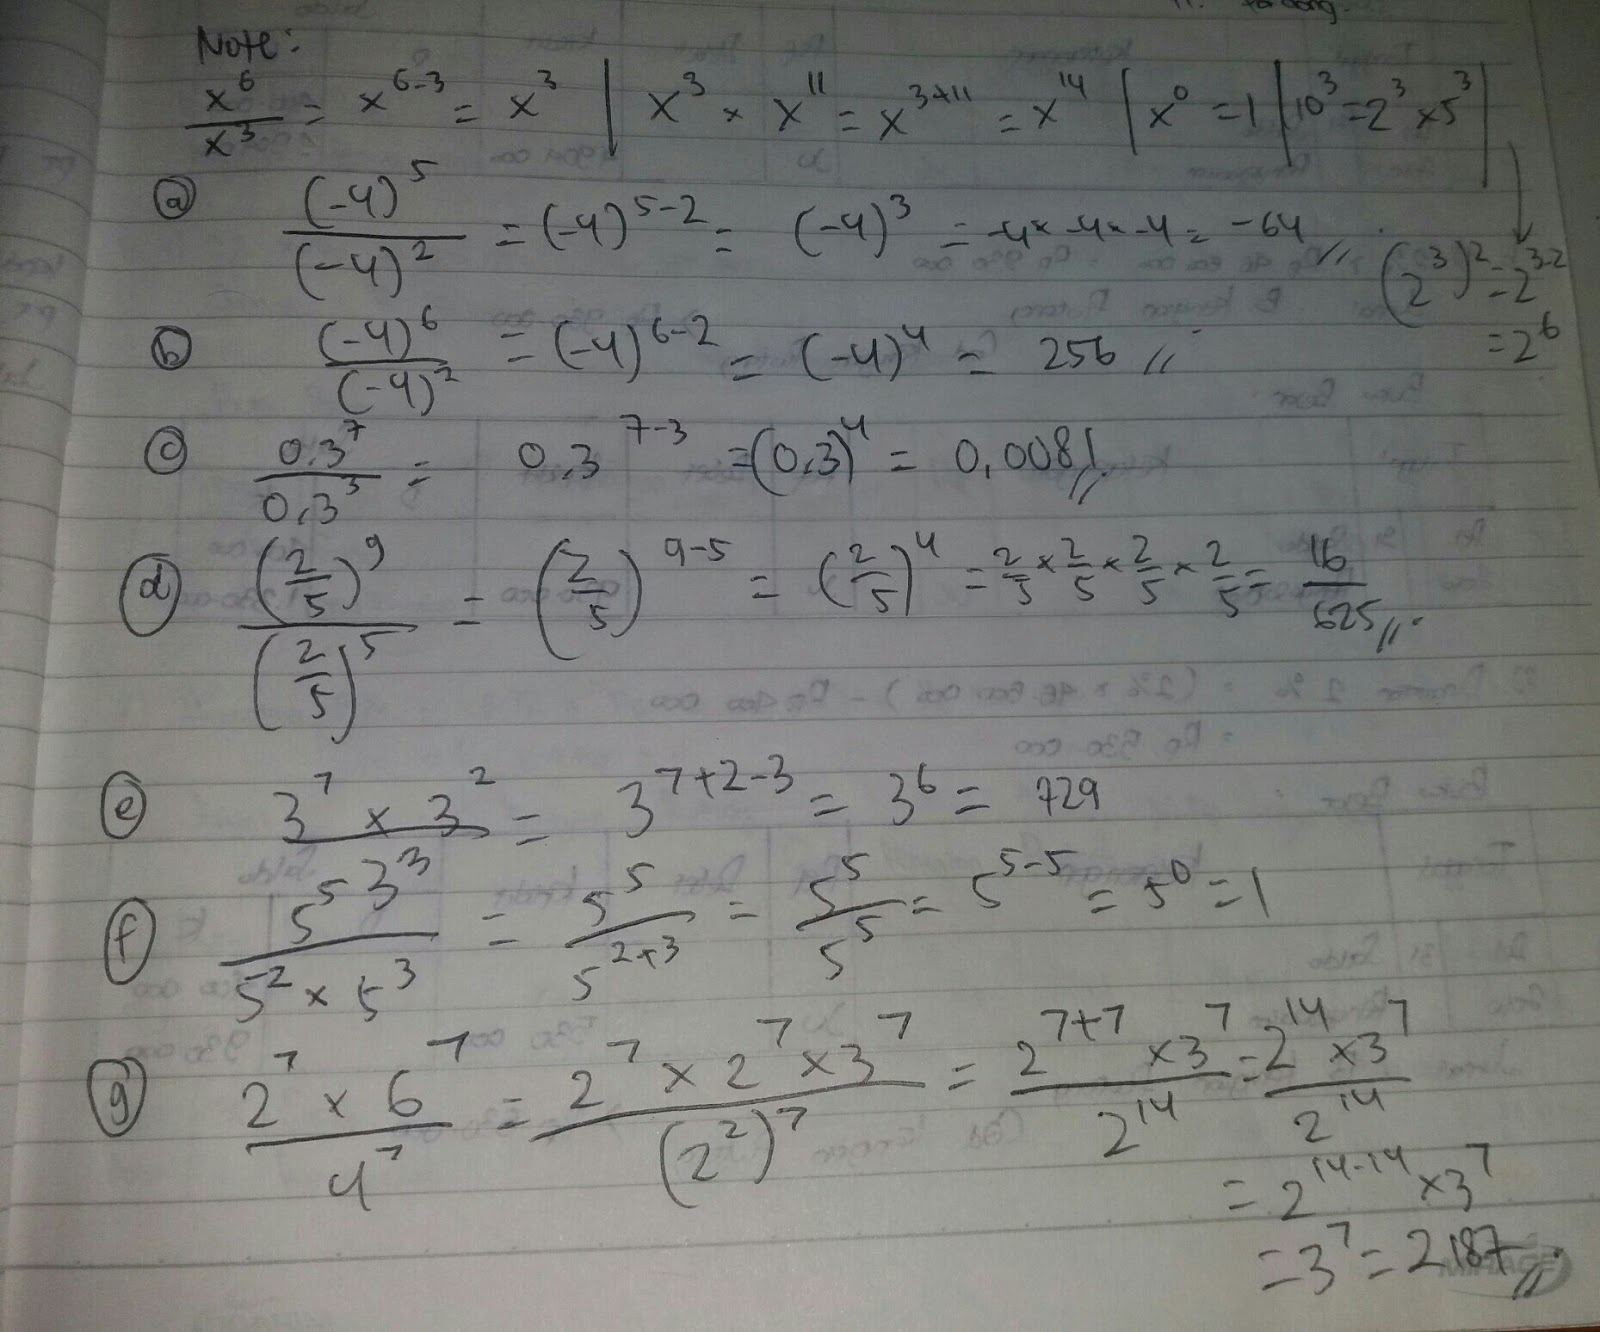 Note:
x⁶/x³ = x⁶⁻³ = x³ | x³ × x¹¹ = x³⁺¹¹ = x¹⁴ | x⁰ = 1 | 10³ = 2³ × 5³ |
(2³)² = 2³·² = 2⁶
a (-4)⁵/(-4)² = (-4)⁵⁻² = (-4)³ = -4 × -4 × -4 = -64 //
b (-4)⁶/(-4)² = (-4)⁶⁻² = (-4)⁴ = 256 //
c 0,3⁷/0,3³ = 0,3⁷⁻³ = (0,3)⁴ = 0,0081 //
d (2/5)⁹/(2/5)⁵ = (2/5)⁹⁻⁵ = (2/5)⁴ = 2/5 × 2/5 × 2/5 × 2/5 = 16/625 //
e 3⁷ × 3²/3³ = 3⁷⁺²⁻³ = 3⁶ = 729
f 5⁵/5² × 5³ = 5⁵/5²⁺³ = 5⁵/5⁵ = 5⁵⁻⁵ = 5⁰ = 1
g 2⁷ × 6⁷/4⁷ = 2⁷ × 2⁷ × 3⁷/(2²)⁷ = 2⁷⁺⁷ × 3⁷/2¹⁴ = 2¹⁴ × 3⁷/2¹⁴
= 2¹⁴⁻¹⁴ × 3⁷
= 3⁷ = 2187 //
MIRAGE